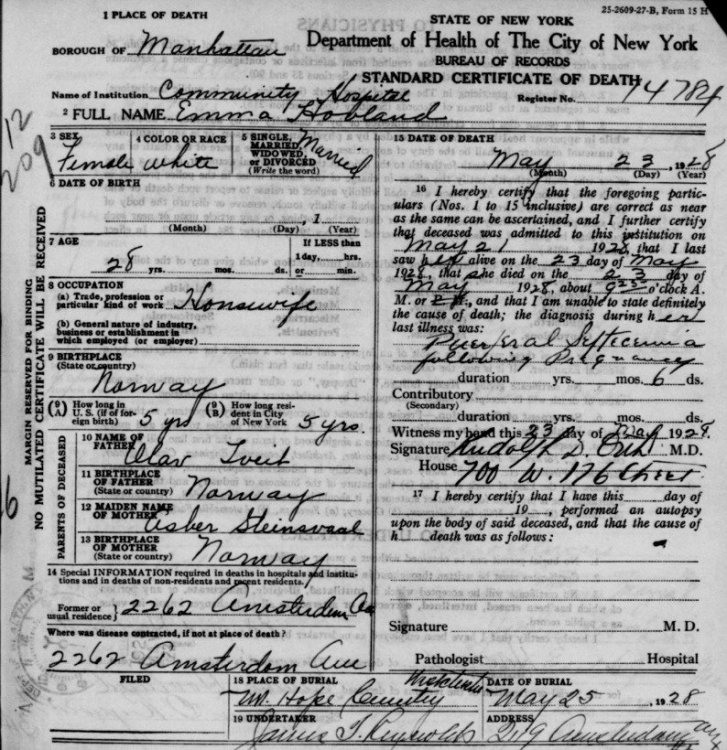 25-2609-27-B, Form 15 H
1 PLACE OF DEATH
STATE OF NEW YORK
BOROUGH OF Manhattan
Department of Health of The City of New York
BUREAU OF RECORDS
STANDARD CERTIFICATE OF DEATH
Name of Institution Community Hospital
Register No. 14784
2 FULL NAME Emma Hovland
12
209
3 SEX
Female
4 COLOR OR RACE
White
5 SINGLE, MARRIED, WIDOWED, or DIVORCED (Write the word)
Married
6 DATE OF BIRTH
, 1
(Month) (Day) (Year)
7 AGE
28 yrs. mos. ds.
If LESS than
1 day, hrs.
or min.
8 OCCUPATION
(a) Trade, profession or
particular kind of work Housewife
(b) General nature of industry,
business or establishment in
which employed (or employer)
9 BIRTHPLACE
(State or country)
Norway
(9 A) How long in U. S. (if of foreign birth) 5 yrs
(9 B) How long resident in City of New York 5 yrs.
PARENTS OF DECEASED
10 NAME OF
FATHER Olav Tveit
11 BIRTHPLACE
OF FATHER
(State or country) Norway
12 MAIDEN NAME
OF MOTHER Asber
13 BIRTHPLACE
OF MOTHER
(State or country) Norway
14 Special INFORMATION required in deaths in hospitals and institu-
tions and in deaths of non-residents and recent residents.
Former or
usual residence 2262 Amsterdam Av
Where was disease contracted, if not at place of death?
2262 Amsterdam Ave
FILED
MARGIN RESERVED FOR BINDING
NO MUTILATED CERTIFICATE WILL BE RECEIVED
15 DATE OF DEATH
May 23, 1928
(Month) (Day) (Year)
16 I hereby certify that the foregoing partic-
ulars (Nos. 1 to 15 inclusive) are correct as near
as the same can be ascertained, and I further certify
that deceased was admitted to this institution on
May 21 1928, that I last
saw her alive on the 23 day of May
1928, that she died on the 23 day of
May 1928, about 9 25 o'clock A.
M. or P. M., and that I am unable to state definitely
the cause of death; the diagnosis during her
last illness was:
Puerperal Septicemia
following Pregnancy
duration yrs. mos. 6 ds.
Contributory
(Secondary)
duration yrs. mos. ds.
Witness my hand this 23 day of May 1928.
Signature Rudolph D. M.D.
House 700 W. 176 Street
17 I hereby certify that I have this day of
19 , performed an autopsy
upon the body of said deceased, and that the cause of
h death was as follows:
Signature M. D.
Pathologist Hospital
18 PLACE OF BURIAL
Mt. Hope Cemetery
DATE OF BURIAL
May 25, 1928
19 UNDERTAKER
James T. Reynolds
ADDRESS